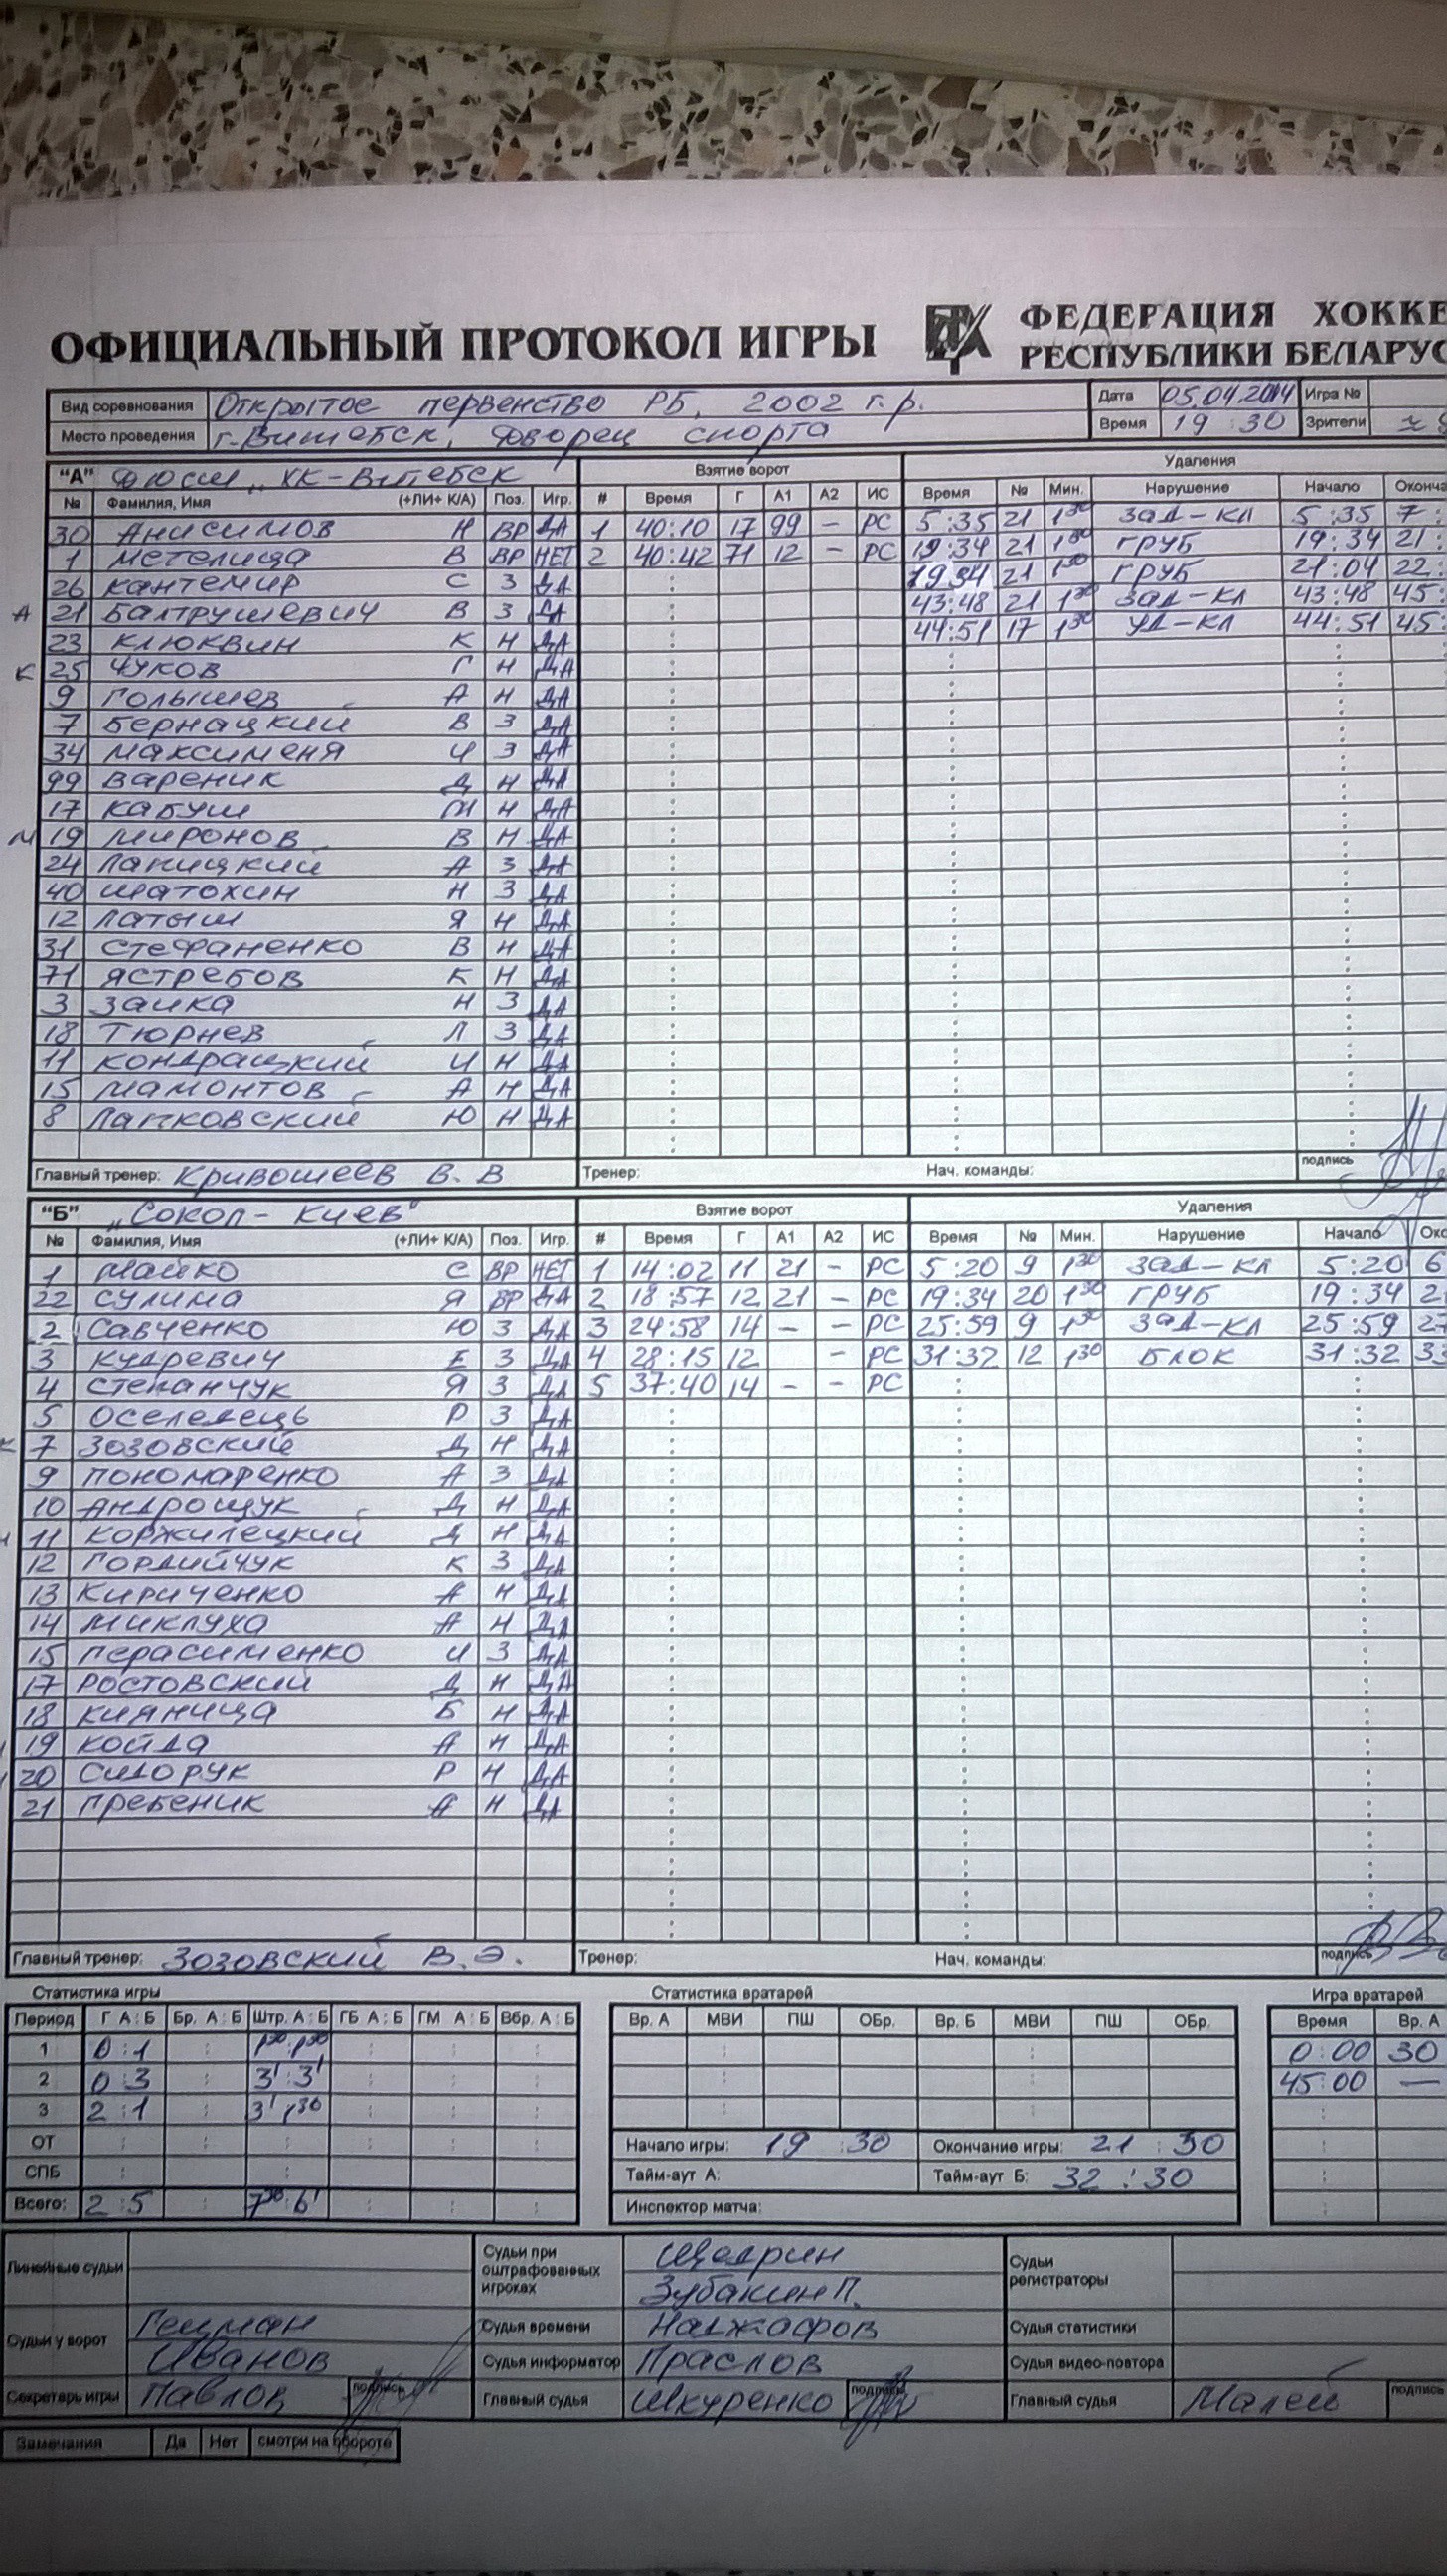 ОФИЦИАЛЬНЫЙ ПРОТОКОЛ ИГРЫ ФЕДЕРАЦИЯ ХОККЕ
РЕСПУБЛИКИ БЕЛАРУС
Вид соревнования Открытое первенство РБ, 2002 г.р. Дата 05.04.2014 Игра №
Место проведения г. Витебск, Дворец спорта Время 19:30 Зрители
"А" ДЮСШ „ХК-Витебск Взятие ворот Удаления
№ Фамилия, Имя (+ЛИ+ К/А) Поз. Игр. # Время Г А1 А2 ИС Время № Мин. Нарушение Начало Оконча
30 Анисимов Н ВР ДА 1 40:10 17 99 – РС 5:35 21 1³⁰ ЗАД-КЛ 5:35 7:
1 Метелица В ВР НЕТ 2 40:42 71 12 – РС 19:34 21 1³⁰ ГРУБ 19:34 21:
26 Кантемир С З ДА 19 34 21 1³⁰ ГРУБ 21:04 22:
А 21 Балтрушевич В З ДА 43:48 21 1³⁰ ЗАД-КЛ 43:48 45:
23 Клюквин К Н ДА 44:51 17 1³⁰ УД-КЛ 44:51 45:
К 25 Чуков Г Н ДА
9 Голышев А Н ДА
7 Бернацкий В З ДА
34 Максименя И З ДА
99 Вареник Д Н ДА
17 Кабуш М Н ДА
19 Миронов В Н ДА
24 Лапицкий А З ДА
40 Шатохин Н З ДА
12 Латыш Я Н ДА
31 Стефаненко В Н ДА
71 Ястребов К Н ДА
3 Заика Н З ДА
18 Тюрнев Л З ДА
11 Кондрацкий И Н ДА
15 Мамонтов А Н ДА
8 Лапковский Ю Н ДА
Главный тренер: Кривошеев В. В Тренер: Нач. команды: подпись
"Б" „Сокол-Киев" Взятие ворот Удаления
№ Фамилия, Имя (+ЛИ+ К/А) Поз. Игр. # Время Г А1 А2 ИС Время № Мин. Нарушение Начало Око
1 Майко С ВР НЕТ 1 14:02 11 21 – РС 5:20 9 1³⁰ ЗАД-КЛ 5:20 6
22 Сулима Я ВР ДА 2 18:57 12 21 – РС 19:34 20 1³⁰ ГРУБ 19:34 2
2 Савченко Ю З ДА 3 24:58 14 – – РС 25:59 9 1³⁰ ЗАД-КЛ 25:59 27
3 Кудревич Е З ДА 4 28:15 12 – РС 31:32 12 1³⁰ БЛОК 31:32 33
4 Степанчук Я З ДА 5 37:40 14 – – РС
5 Оселедець Р З ДА
К 7 Зозовский Д Н ДА
9 Пономаренко А З ДА
10 Андрощук Д Н ДА
11 Коржилецкий Д Н ДА
12 Гордийчук К З ДА
13 Кириченко А Н ДА
14 Миклуха А Н ДА
15 Герасименко И З ДА
17 Ростовский Д Н ДА
18 Кияница Б Н ДА
19 Койда А Н ДА
20 Сидорук Р Н ДА
21 Гребеник А Н ДА
Главный тренер: Зозовский В.Э. Тренер: Нач. команды: подпись
Статистика игры Статистика вратарей Игра вратарей
Период Г А:Б Бр. А:Б Штр. А:Б ГБ А:Б ГМ А:Б Вбр. А:Б Вр. А МВИ ПШ ОБр. Вр. Б МВИ ПШ ОБр. Время Вр. А
1 0:1 1³⁰:1³⁰ 0:00 30
2 0:3 3':3' 45:00 —
3 2:1 3' 1³⁰
ОТ Начало игры: 19:30 Окончание игры: 21:30
СПБ Тайм-аут А: Тайм-аут Б: 32:30
Всего: 2:5 7³⁰:6' Инспектор матча:
Линейные судьи Судьи при оштрафованных игроках Щедрин Судьи регистраторы
Зубакин П.
Судьи у ворот Гецман Судья времени Наджафов Судья статистики
Иванов Судья информатор Праслов Судья видео-повтора
Секретарь игры Павлов подпись Главный судья Шкуренко подпись Главный судья Малей подпись
Замечания Да Нет смотри на обороте